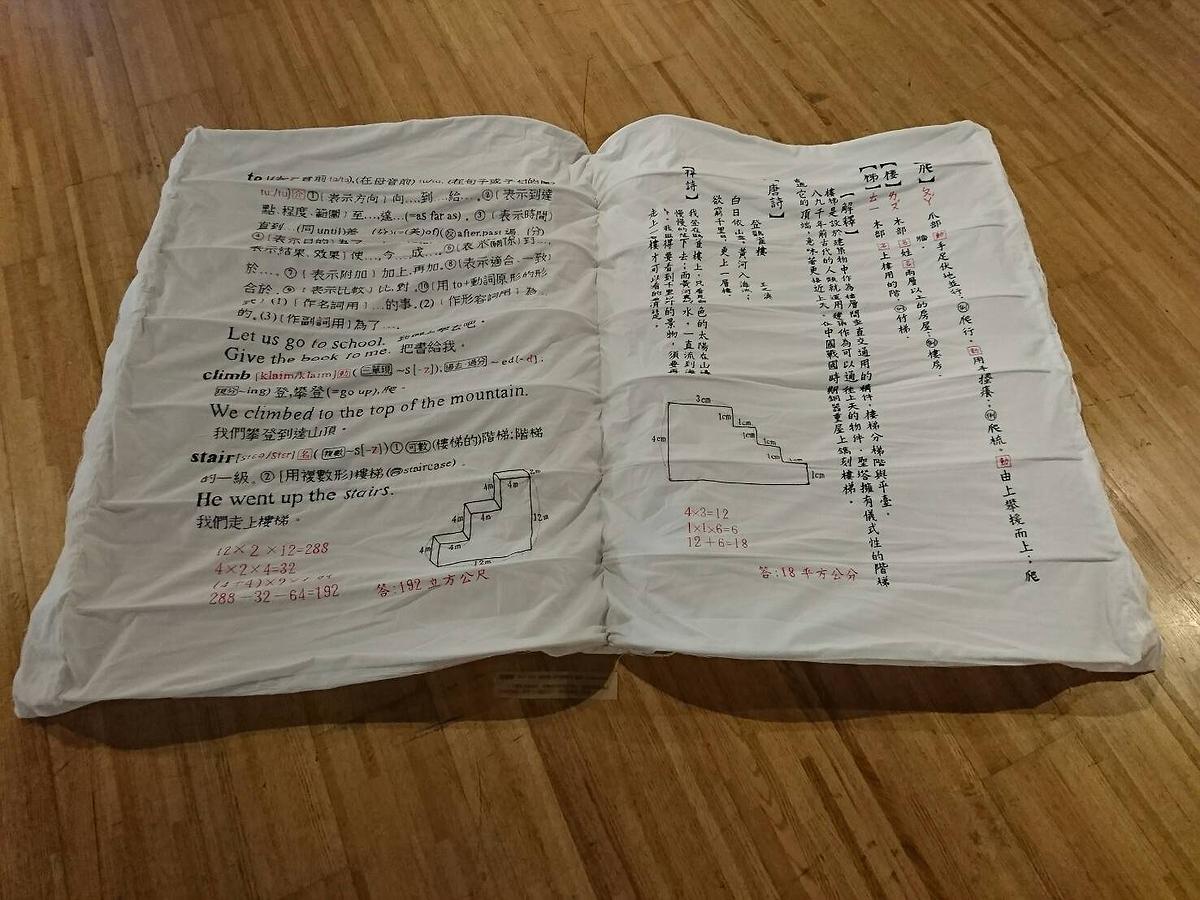 to
tu:/tu] 介 ① [表示方向] 向…到…給…。② [表示到達
點、程度、範圍] 至…達…(=as far as). ③ [表示時間]
直到…(同until)差
④ [表示目的] 為了
表示結果、效果] 使…令…成…。
於…。⑦ [表示附加] 加上,再加。⑧ [表示適合、一致]
合於。⑨ [表示比較] 比,對。⑩ [用 to+動詞原形的形
式] (1) [作名詞用] …的事. (2) [作形容詞用] 為…
的. (3) [作副詞用] 為了….
Let us go to school.
Give the book to me. 把書給我。
climb [klaim/klaim] 動 (三單現 ~s[-z]; 過去·過分 ~ed[-d].
現分-ing) 登,攀登(=go up),爬。
We climbed to the top of the mountain.
我們攀登到達山頂。
stair 名 (複數 ~s[-z]) ① 可數 (樓梯的)階梯;階梯
的一級。② [用複數形] 樓梯 (同 staircase)
He went up the stairs.
我們走上樓梯。
4m
4m
4m
4m
4m
4m
2m
12m
12m
12×2×12=288
4×2×4=32
288-32-64=192
答:192立方公尺
【爬】ㄆㄚˊ 爪部 動 手足伏地並行。例 爬行。動 用手搔癢;例 爬梳。動 由上攀援而上;爬
牆。
【樓】ㄌㄡˊ 木部 名 姓 名 兩層以上的房屋;例 樓房。
【梯】ㄊㄧ 木部 名 上樓用的階。例 竹梯。
【解釋】
樓梯是設於建築物中作為樓層間垂直交通用的構件,樓梯分梯階與平臺。
八九千年前古代的人類就運用建築作為可以通往上天的物件,聖塔擁有儀式性的階梯
它的頂端,意味著更接近上天。在中國戰國時期銅器重屋上鐫刻樓梯。
【唐詩】
登鸛雀樓 王之渙
白日依山盡,黃河入海流;
欲窮千里目,更上一層樓。
【釋詩】
我登在鸛雀樓上,只看見白色的太陽在山邊
慢慢的往下去;而黃河裏的水,一直流到海
我但得要看到千里外的景物,須要再
走上一層樓才可以看的清楚。
3cm
4cm
1cm
1cm
1cm
1cm
1cm
4×3=12
1×1×6=6
12+6=18
答:18平方公分